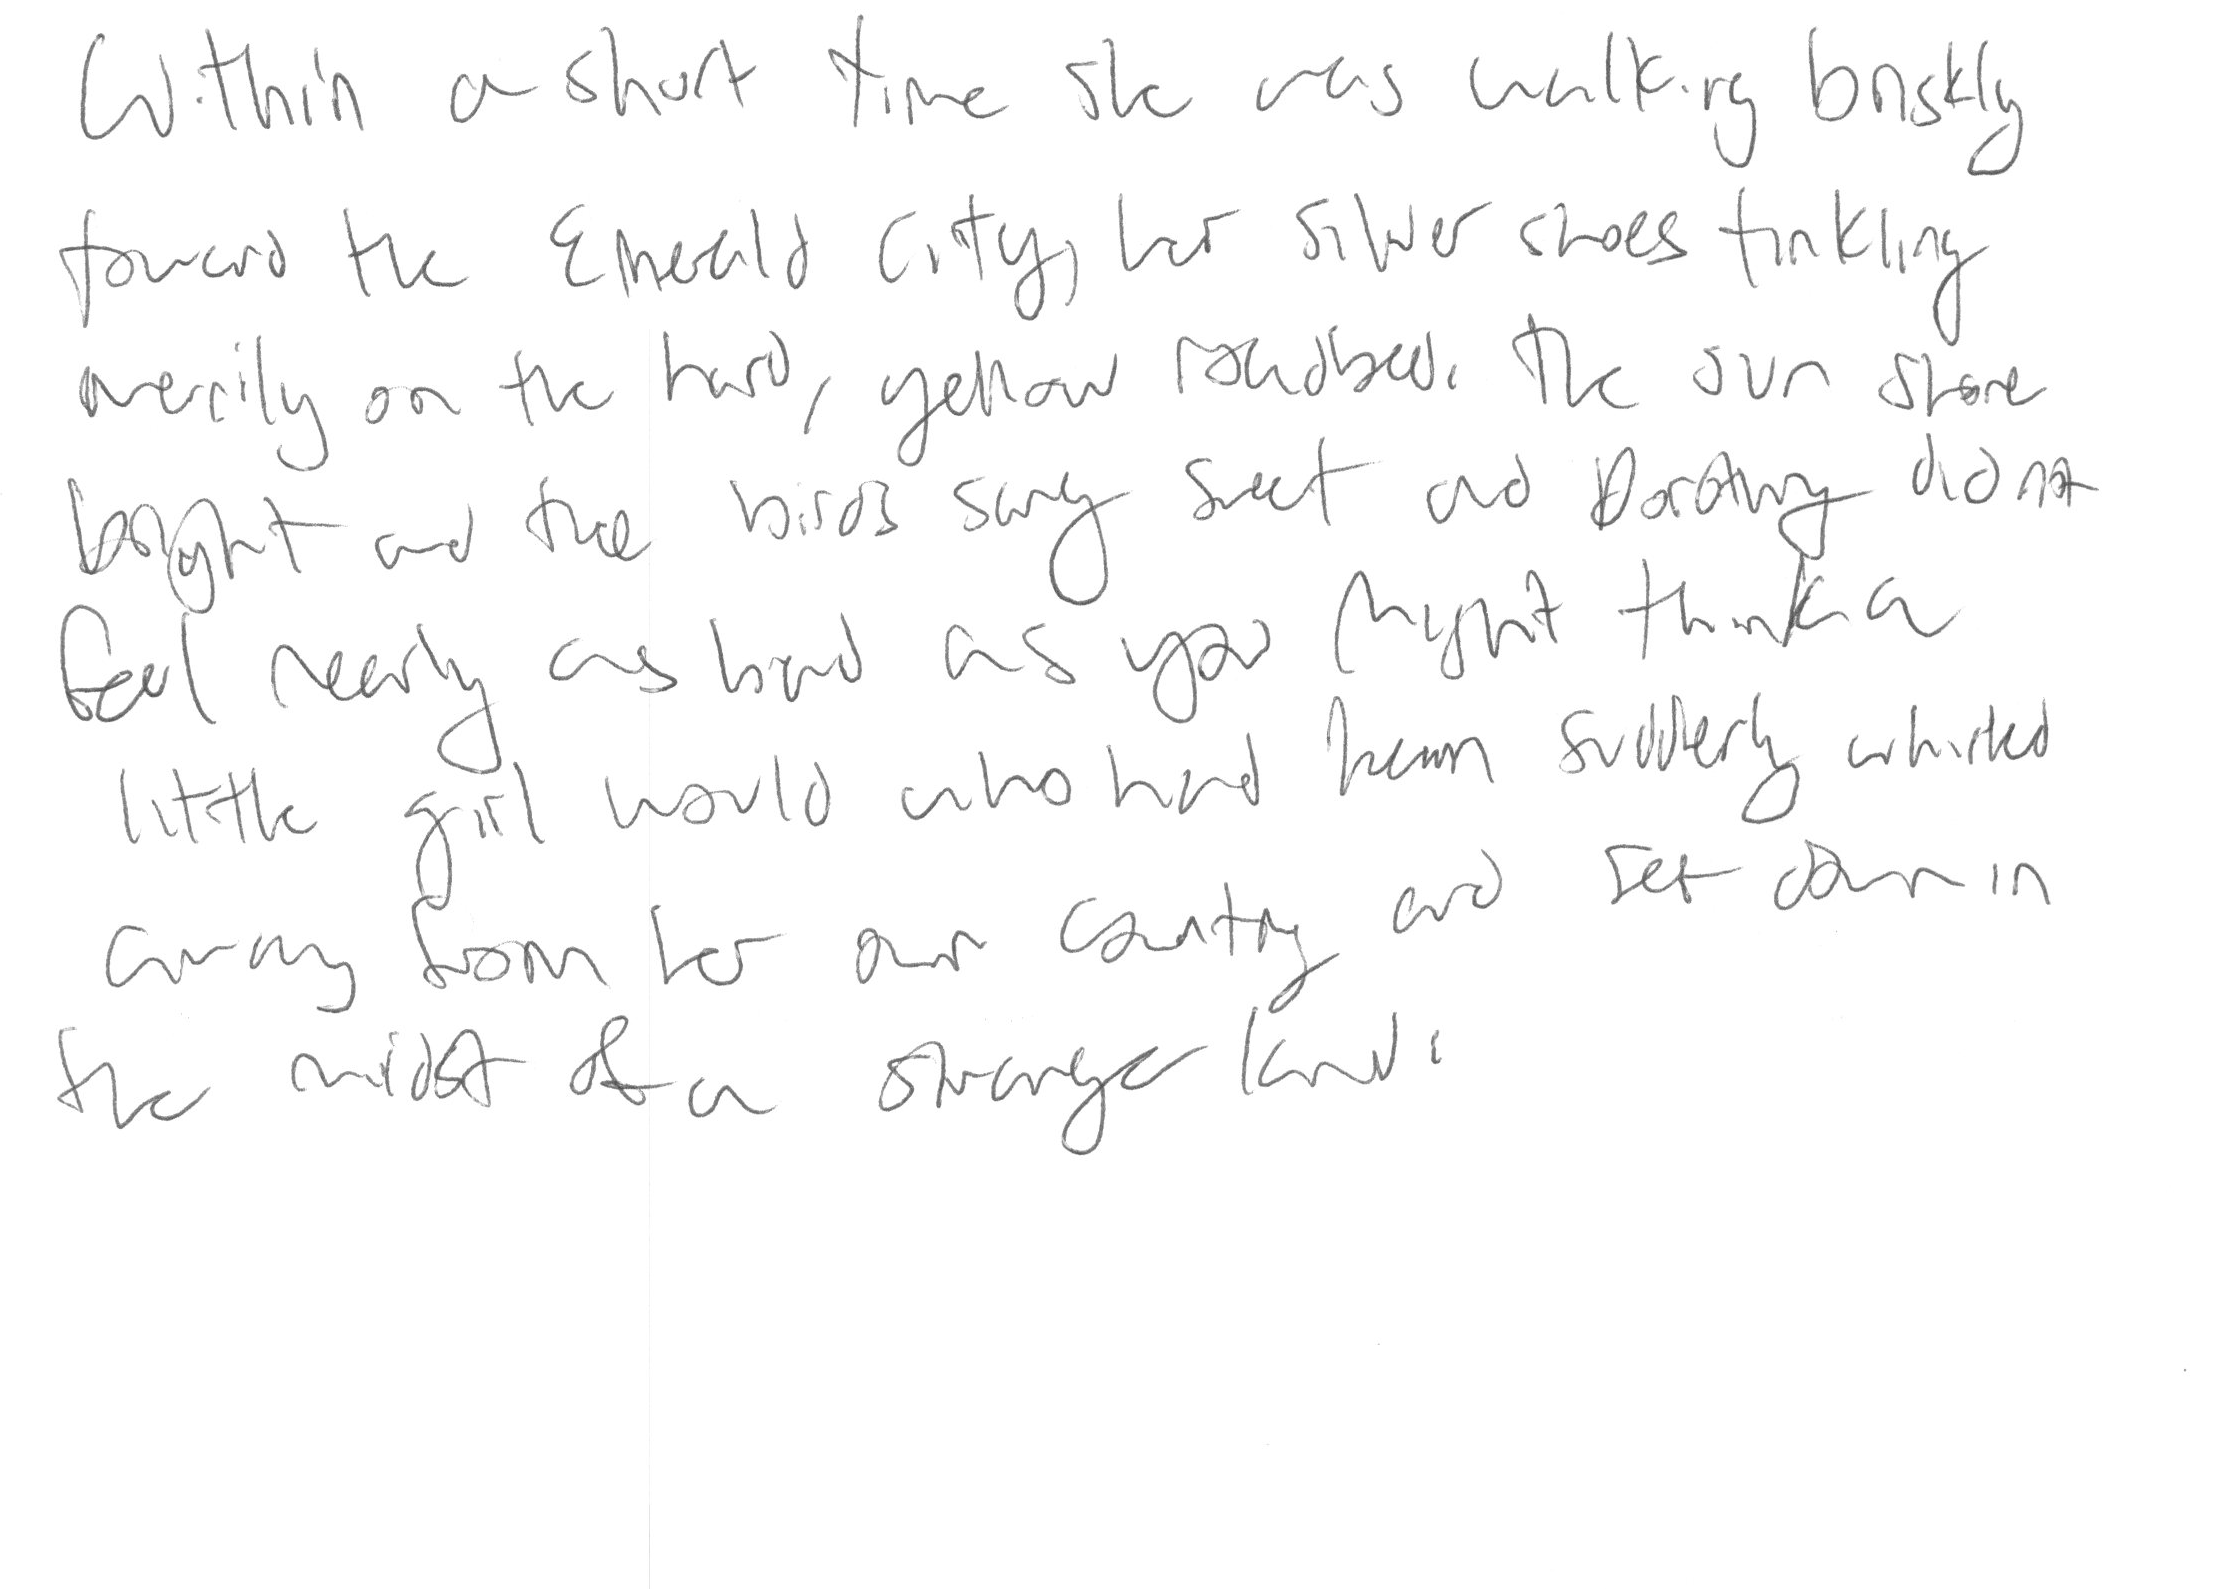 Within a short time she was walking briskly
toward the Emerald City, her silver shoes tinkling
merrily on the hard, yellow roadbed. The sun shone
bright and the birds sang sweet and Dorothy did not
feel nearly as bad as you might think a
little girl would who had been suddenly whisked
away from her own country and set down in
the midst of a strange land.